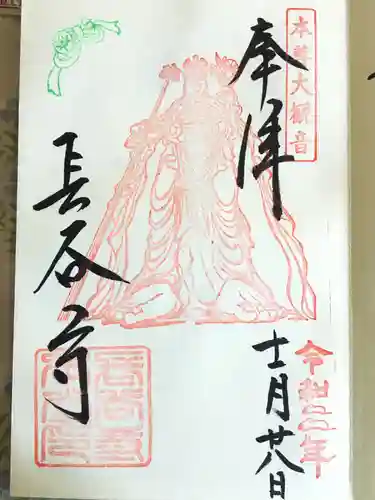 本尊大観音
奉拝
長谷寺
令和二年
十一月廿八日